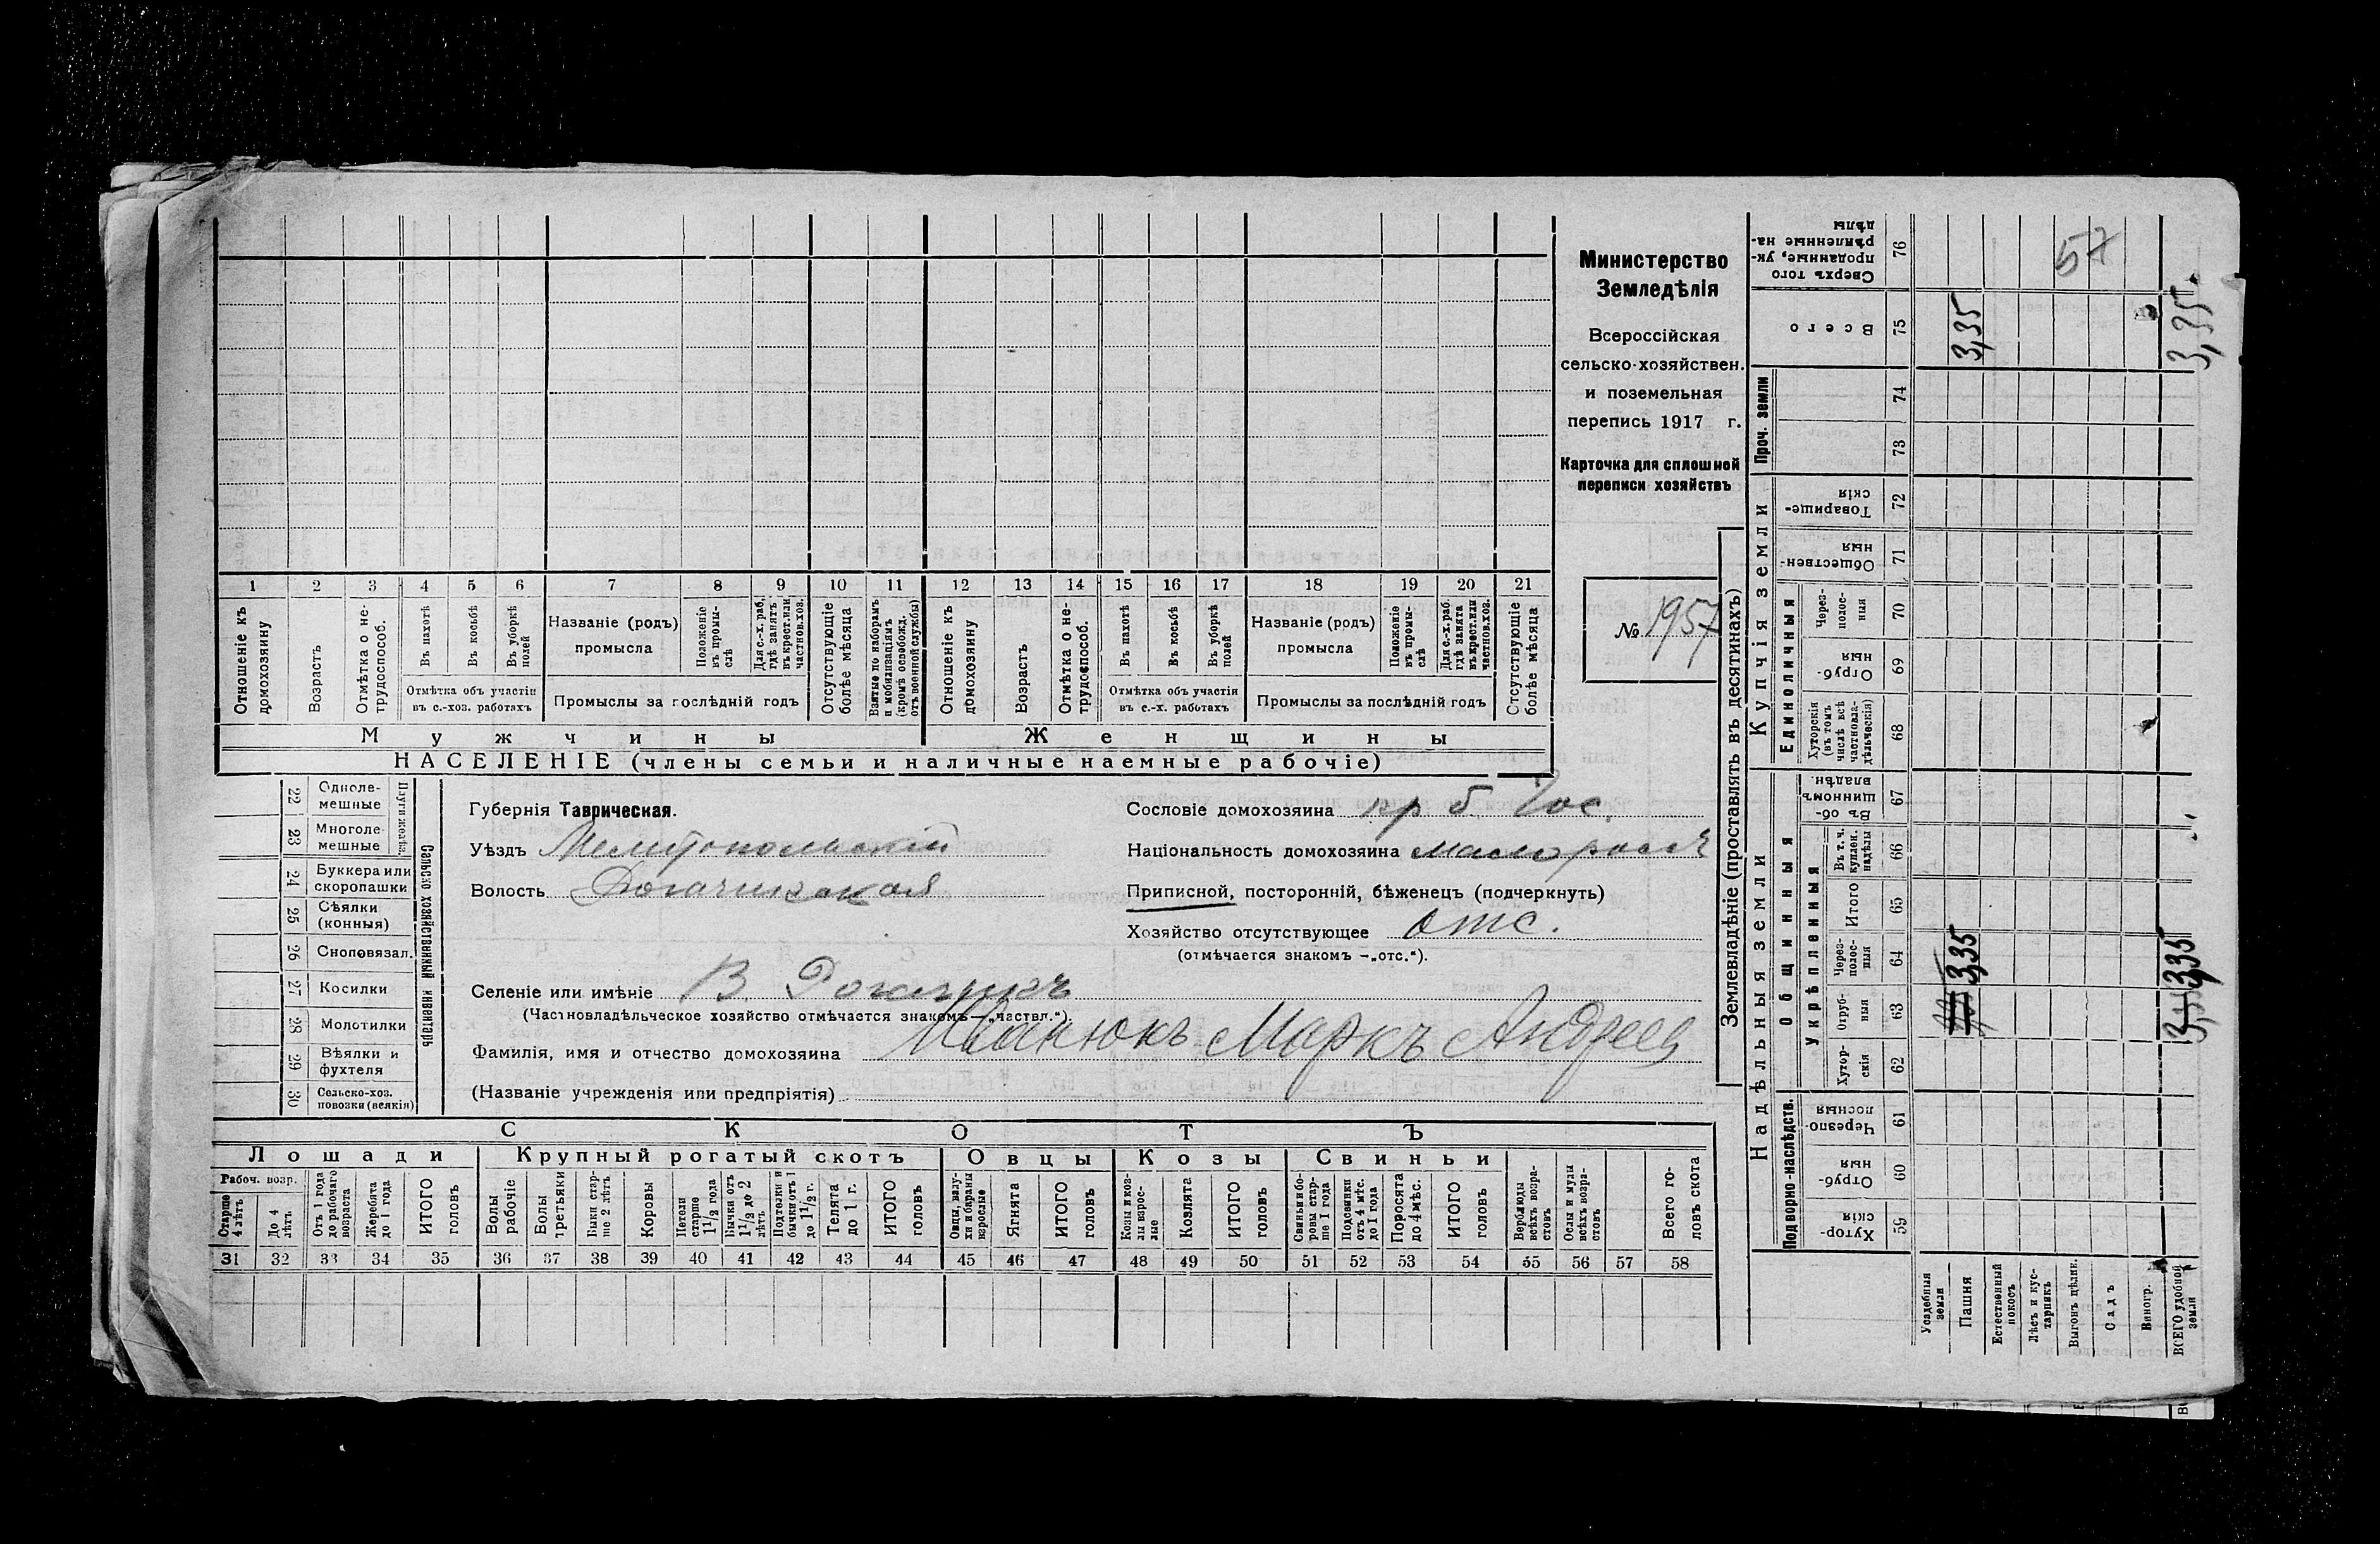 Министерство
Земледѣлія
Всероссійская
сельско-хозяйствен.
и поземельная
перепись 1917 г.
Карточка для сплошной
переписи хозяйствъ
№ 1957
1 2 3 4 5 6 7 8 9 10 11 12 13 14 15 16 17 18 19 20 21
Отношеніе къ домохозяину
Возрастъ
Отмѣтка о не-трудоспособ.
Въ пахотѣ
Въ косьбѣ
Въ уборкѣ полей
Отмѣтка объ участіи
въ с.-хоз. работахъ
Названіе (родъ)
промысла
Положеніе въ промы-слѣ
Для с.-х. раб. гдѣ занятъ въ крест. или частнов. хоз.
Промыслы за послѣдній годъ
Отсутствующіе болѣе мѣсяца
Взятые по наборамъ и мобилизаціямъ (кромѣ освобожд. отъ военной службы)
Отношеніе къ домохозяину
Возрастъ
Отмѣтка о не-трудоспособ.
Въ пахотѣ
Въ косьбѣ
Въ уборкѣ полей
Отмѣтка объ участіи
въ с.-х. работахъ
Названіе (родъ)
промысла
Положеніе въ промы-слѣ
Для с.-х. раб. гдѣ занята въ крест. или частнов. хоз.
Промыслы за послѣдній годъ
Отсутствующіе болѣе мѣсяца
Мужчины Женщины
НАСЕЛЕНІЕ (члены семьи и наличные наемные рабочіе)
Сельско хозяйственный инвентарь
Плуги желѣз.
22 Одноле-мешные
23 Многоле-мешные
24 Буккера или скоропашки
25 Сѣялки (конныя)
26 Сноповязал.
27 Косилки
28 Молотилки
29 Вѣялки и фухтеля
30 Сельско-хоз. повозки (всякія)
Губернія Таврическая.
Уѣздъ Мелитопольскій
Волость Рогачикская
Селеніе или имѣніе В. Рогачикъ
(Частновладѣльческое хозяйство отмѣчается знакомъ —„частвл.“).
Фамилія, имя и отчество домохозяина Иванюкъ Маркъ Андреев
(Названіе учрежденія или предпріятія)
Сословіе домохозяина кр б. Гос.
Національность домохозяина малоросс
Приписной, посторонній, бѣженецъ (подчеркнуть)
Хозяйство отсутствующее отс.
(отмѣчается знакомъ —„отс.“).
СКОТЪ
Лошади Крупный рогатый скотъ Овцы Козы Свиньи
Рабоч. возр.
Старше 4 лѣтъ
До 4 лѣтъ
Отъ 1 года до рабочаго возраста
Жеребята до 1 года
ИТОГО головъ
Волы рабочіе
Волы третьяки
Быки стар-ше 2 лѣтъ
Коровы
Нетели старше 1½ года
Бычки отъ 1½ до 2 лѣтъ
Подтелки и бычки отъ 1 до 1½ г.
Телята до 1 г.
ИТОГО головъ
Овцы, валу-хи и бараны взрослые
Ягнята
ИТОГО головъ
Козы и коз-лы взрос-лые
Козлята
ИТОГО головъ
Свиньи и бо-ровы стар-ше 1 года
Подсвинки отъ 4 мѣс. до 1 года
Поросята до 4 мѣс.
ИТОГО головъ
Верблюды всѣхъ возра-стовъ
Ослы и мулы всѣхъ возра-стовъ
Всего го-ловъ скота
31 32 33 34 35 36 37 38 39 40 41 42 43 44 45 46 47 48 49 50 51 52 53 54 55 56 57 58
Землевладѣніе (проставлять въ десятинахъ)
Надѣльныя земли
Купчія земли
Проч. земли
Подворно-наслѣдств.
Общинныя
Укрѣпленныя
Единоличныя
Хутор-скія 59
Отруб-ныя 60
Черезпо-лосныя 61
Хутор-скія 62
Отруб-ныя 63
Через-полос-ныя 64
Итого 65
Въ т. ч. куплен. надѣлы 66
Въ об-щинномъ владѣн. 67
Хуторскія (въ томъ числѣ всѣ частновла-дѣльческія) 68
Отруб-ныя 69
Через-полос-ныя 70
Обществен-ныя 71
Товарище-скія 72
73
74
Всего 75
Сверхъ того проданные, ук-рѣпленные на-дѣлы 76
Усадебныя земли
Пашня
3,35
3,35
Естественный покосъ
Лѣсъ и кус-тарникъ
Выгонъ цѣлик.
Садъ
Виногр.
ВСЕГО удобной земли
3,35
3,35
57